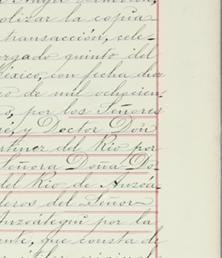 olizar la copia
transacción, cele-
rgado quinto del
éxico, con fecha dia
co de mil ochocien
s, por los Señores
é y Doctor Don
rtinez del Rio por
Señora Doña Do-
del Rio de Anzoá-
deros del Señor
nzoátegui por la
ente, que consta de
original